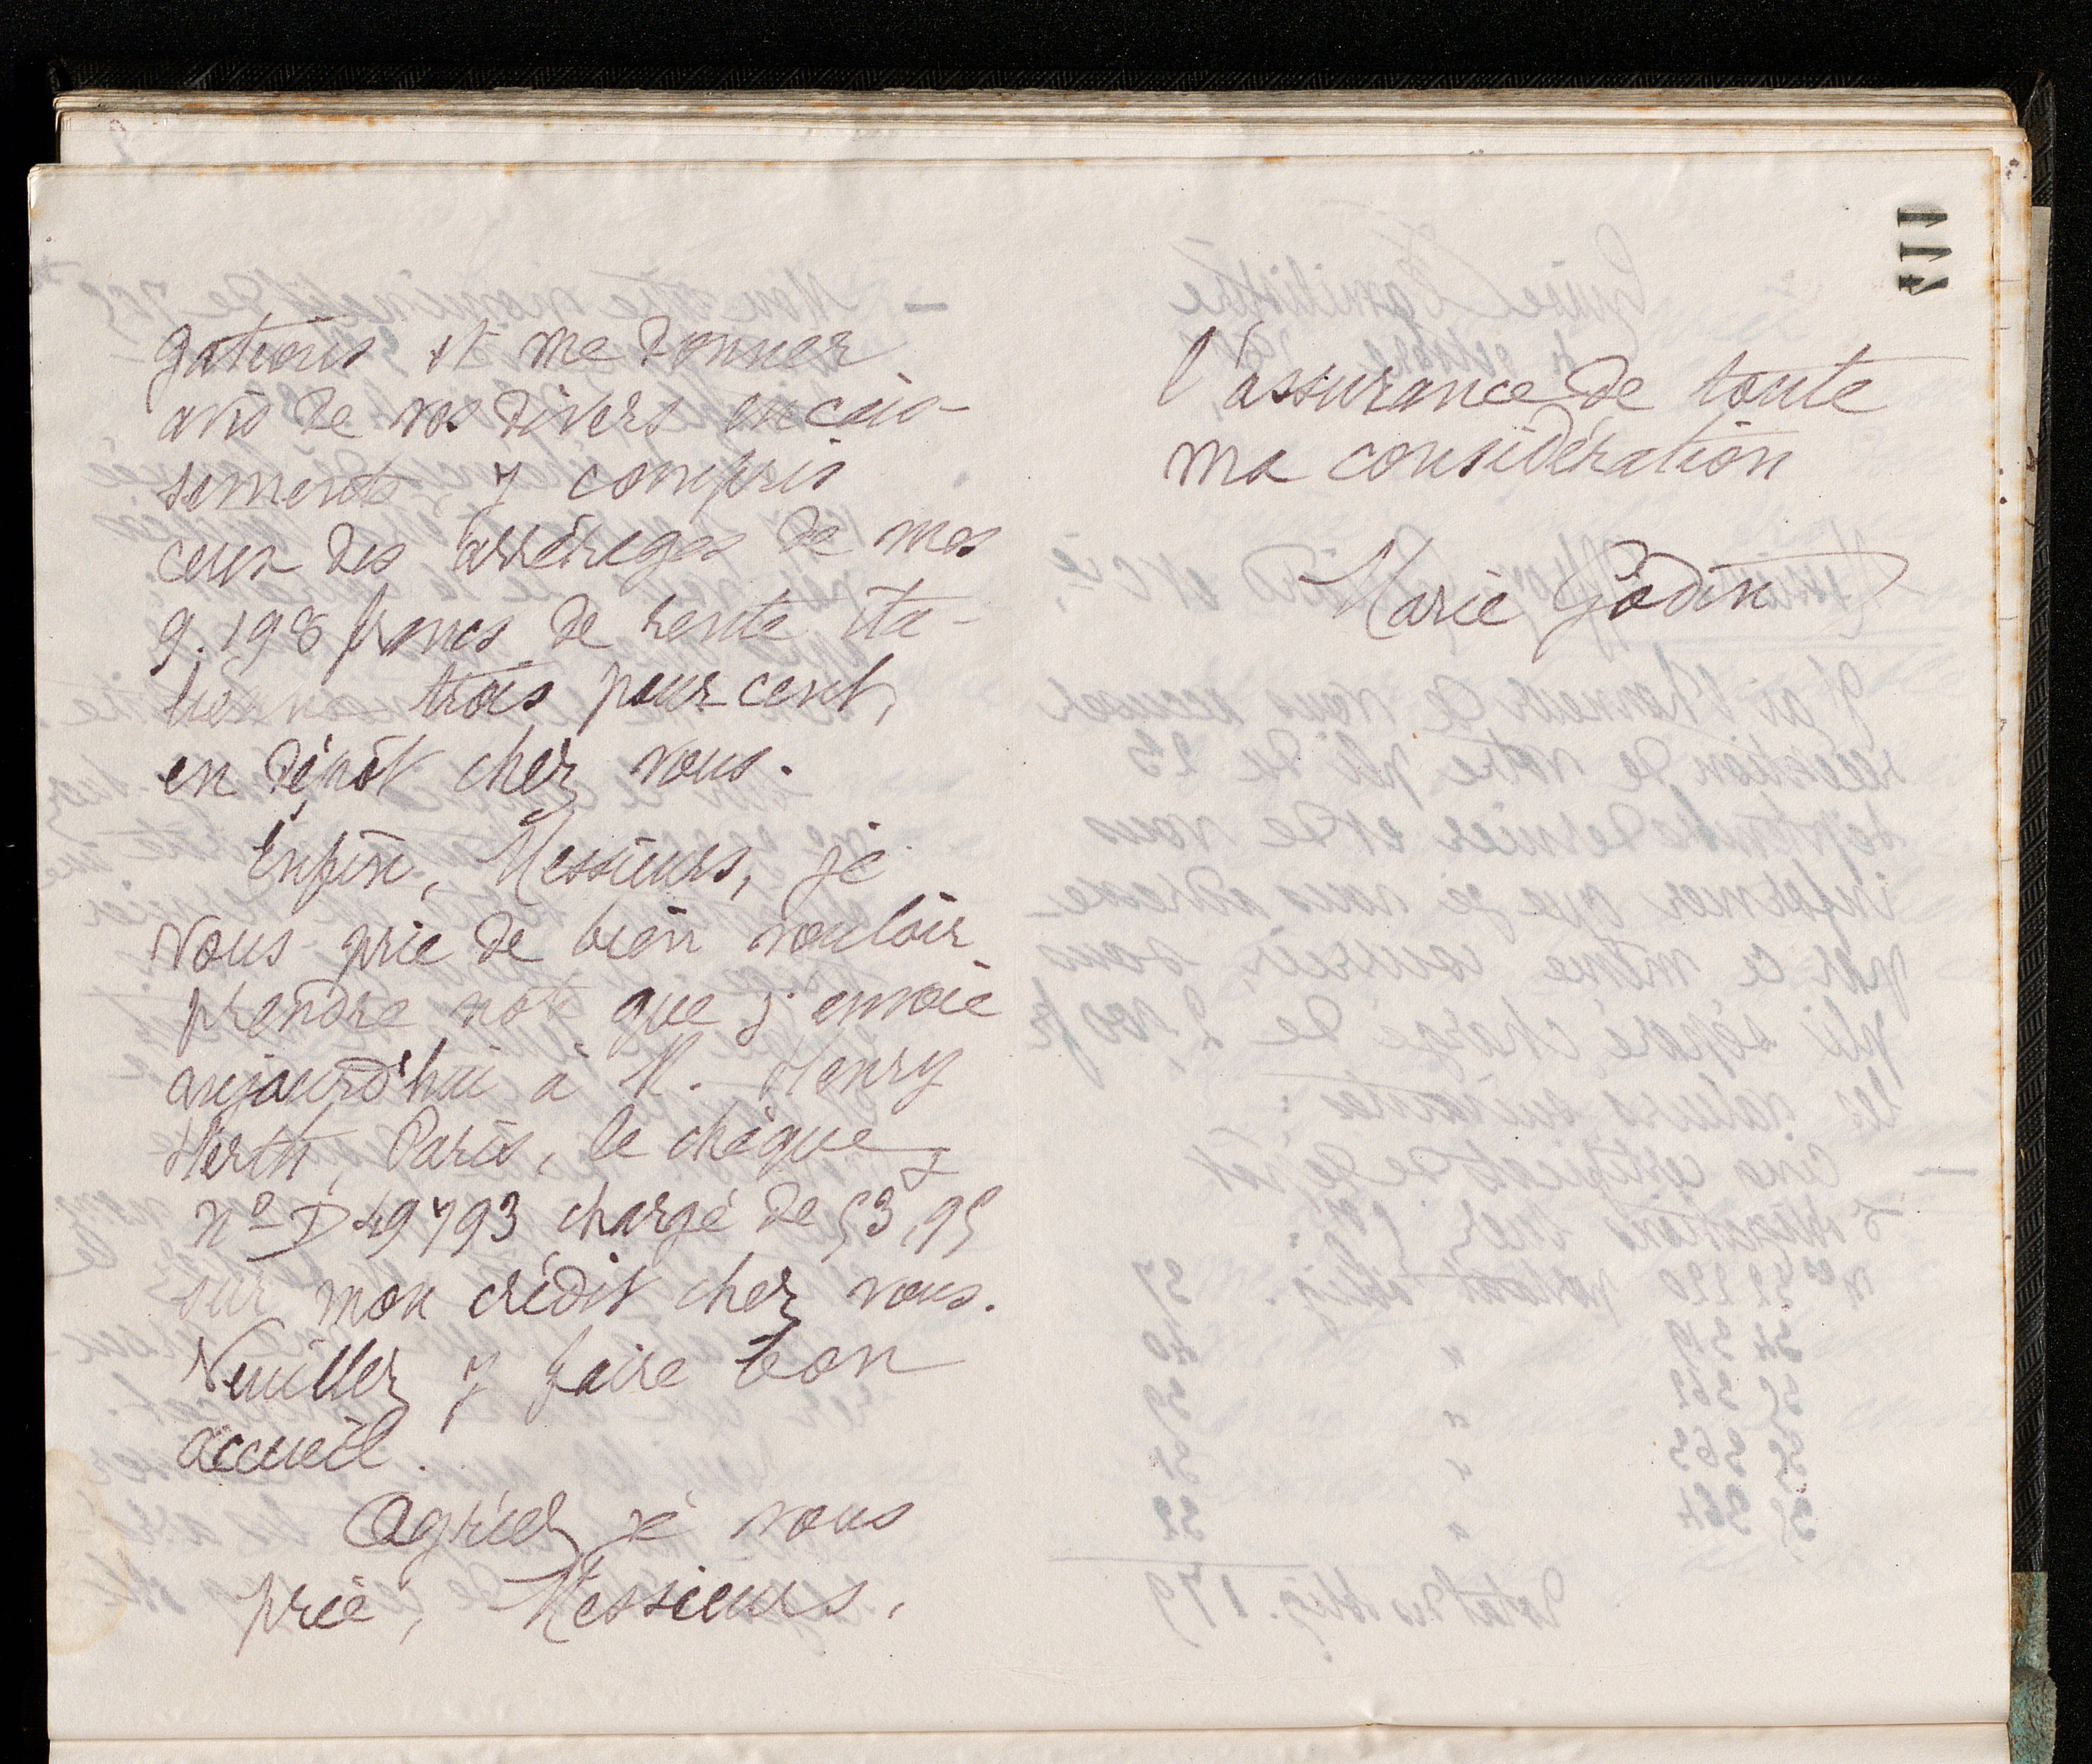 gations et me donner
avis de vos divers encais-
sements y compris
ceux des arrérages de mes
9.198 francs de rente ita-
lienne trois pour cent,
en dépôt chez vous.
Enfin, Messieurs, je
vous prie de bien vouloir
prendre note que j'envoie
aujourd'hui à M. Henry
Paris, le chèque
no D 49793 chargé de 53,95
sur mon crédit chez vous.
Veuillez y faire bon
accueil.
Agréez je vous
prie, Messieurs,
l'assurance de toute
ma considération
Marie Godin